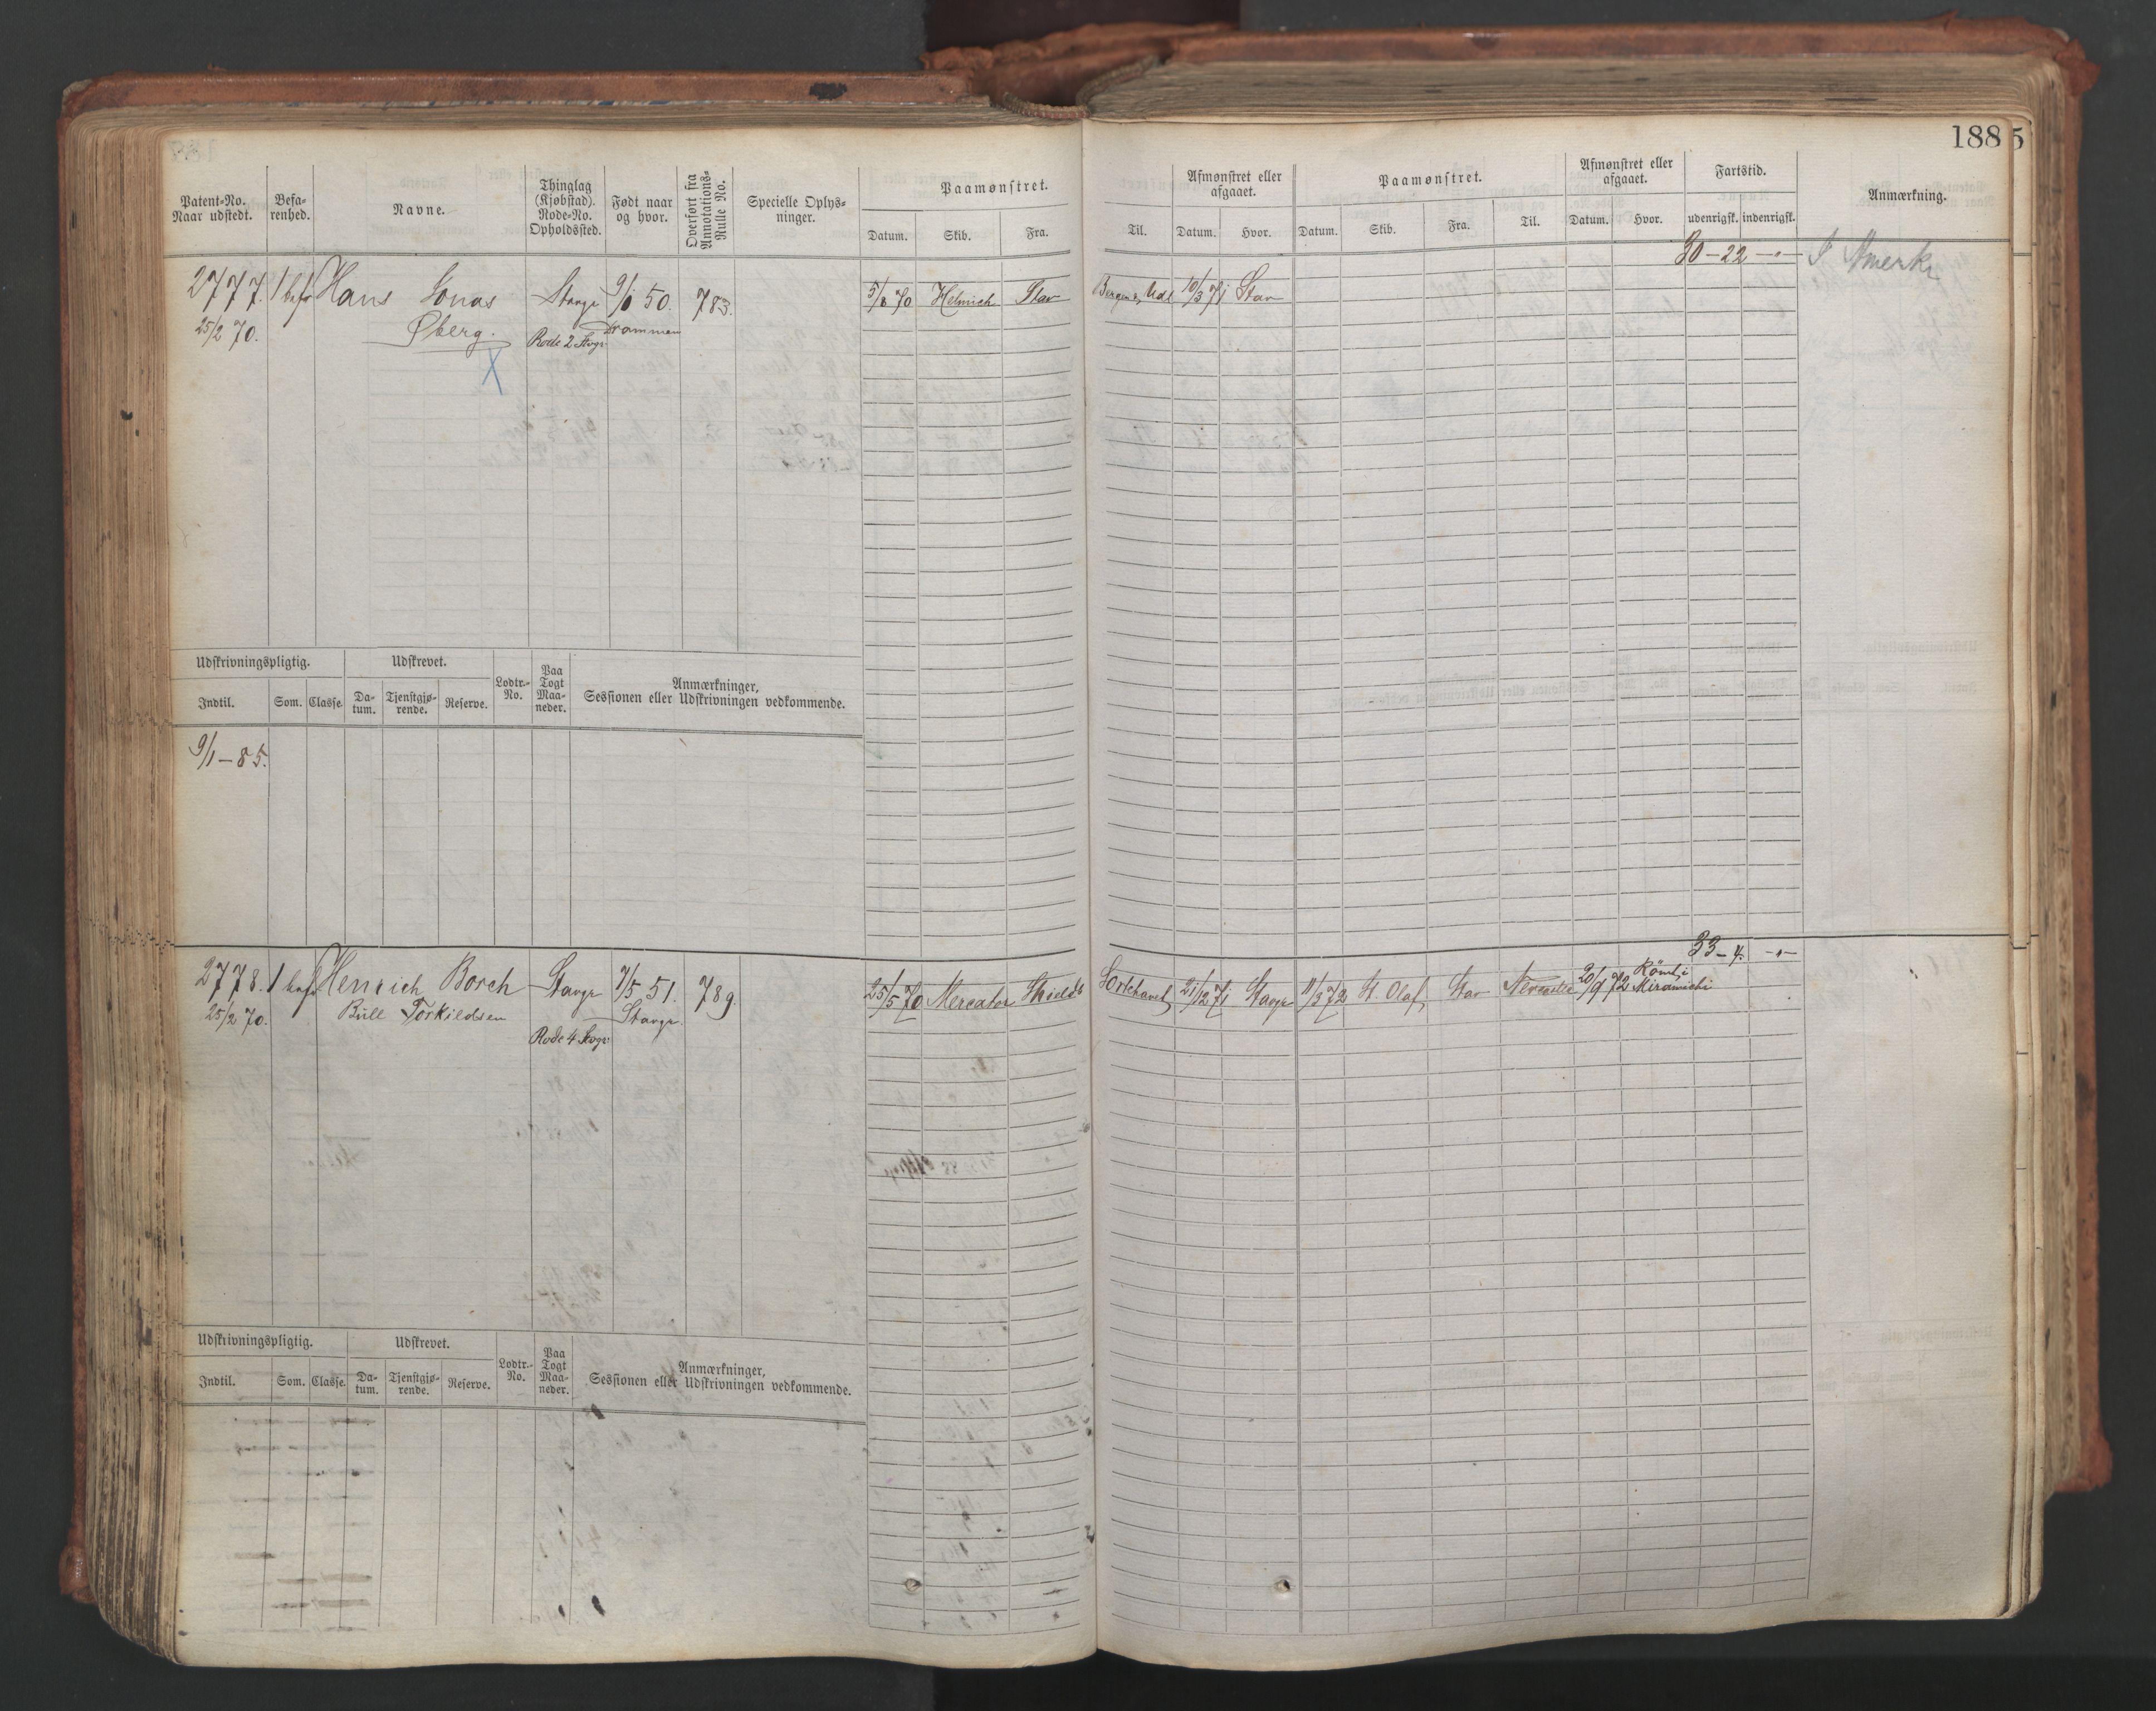 188 5
Patent-No.
Naar udstedt.
Befa-
renhed.
Navne.
Thinglag
(Kjøbstad).
Rode-No.
Opholdssted.
Født naar
og hvor.
Overført fra
Annotations-
Rulle No.
Specielle Oplys-
ninger.
Paamønstret.
Datum. Skib. Fra.
Til.
Afmønstret eller
afgaaet.
Datum. Hvor.
Paamønstret.
Datum. Skib. Fra. Til.
Afmønstret eller
afgaaet.
Datum. Hvor.
Fartstid.
udenrigsk. indenrigsk.
Anmærkning.
30-22 -"-
2777. 1 bef Hans Jonas Stavgr 9/1 50. 783. 5/8 70 Helmich Stav 10/3 71 Stav
25/2 70. Øberg. Rode 2 Stvgr Drammen
X
Udskrivningspligtig. Udskrevet.
Indtil. Som. Classe.
Da-
tum.
Tjenstgjø-
rende.
Reserve.
Lodtr.-
No.
Paa
Togt
Maa-
neder.
Anmærkninger,
Sessionen eller Udskrivningen vedkommende.
9/1-85.
33-4. -"-
2778. 1 bef Henrich Borch Stavgr 7/5 51. 789. 25/5 70 Mercator Shields 21/12 71 Stavgr 11/3 72 St. Olaf Stav Newcastle 20/9 72 Römt i Miramichi
25/2 70. Bull Torkildsen Stavgr.
Rode 4 Stvgr
Udskrivningspligtig. Udskrevet.
Indtil. Som. Classe.
Da-
tum.
Tjenstgjø-
rende.
Reserve.
Lodtr.-
No.
Paa
Togt
Maa-
neder.
Anmærkninger,
Sessionen eller Udskrivningen vedkommende.